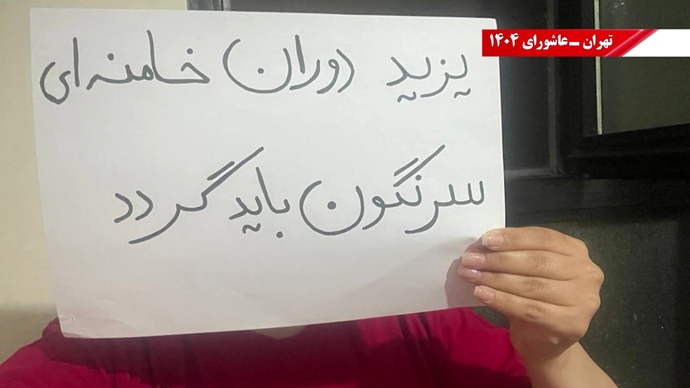 تهران _عاشورای ۱۴۰۴
یزید دوران خامنه‌ای
سرنگون باید گردد